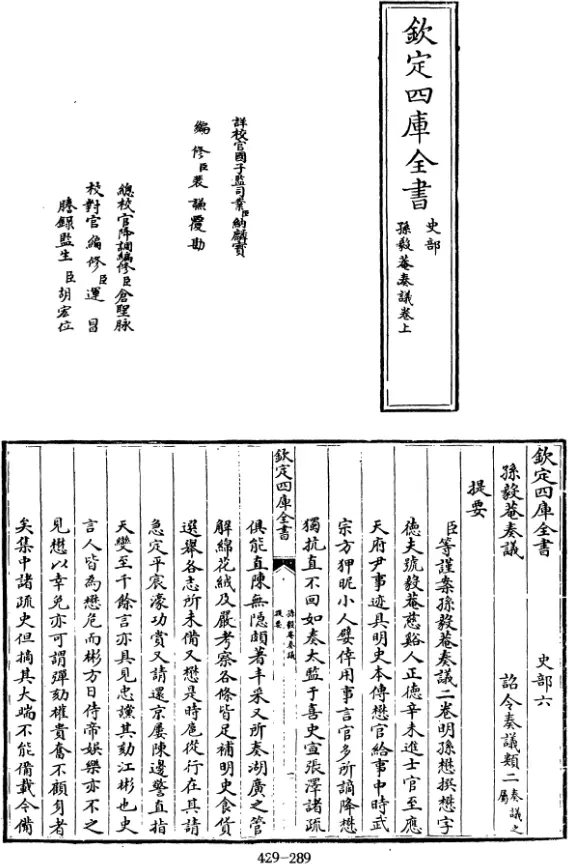 欽定四庫全書
史部
孫毅菴奏議卷上
詳校官國子監司業臣納麟寶
編修臣裴謙覆勘
總校官降調編修臣倉聖脉
校對官編修臣運昌
謄錄監生臣胡宏位
欽定四庫全書
史部六
孫毅菴奏議
詔令奏議類二奏議之屬
提要
臣等謹案孫毅菴奏議二卷明孫懋撰懋字
德夫號毅菴慈谿人正德辛未進士官至應
天府尹事迹具明史本傳懋官給事中時武
宗方狎昵小人嬖倖用事言官多所謫降懋
獨抗直不回如奏太監于喜史宣張澤諸疏
欽定四庫全書
孫毅菴奏議
提要
俱能直陳無隐頗著丰采又所奏湖廣之管
解綿花絨及嚴考察各條皆足補明史食貨
選舉各志所未備又懋是時扈從行在其請
急定平宸濠功賞又請還京屢陳邊警直指
天變至千餘言亦具見忠讜其劾江彬也史
言人皆為懋危而彬方日侍帝娯樂亦不之
見懋以幸免亦可謂彈劾權貴奮不顧身者
矣集中諸疏史但摘其大端不能備載今備
429-289